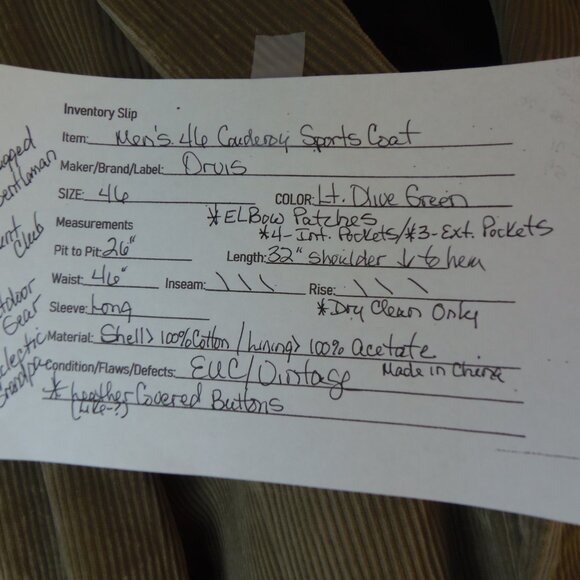 Inventory Slip
Item: Men's 46 Courderoy Sports Coat
Maker/Brand/Label: Orvis
SIZE: 46 COLOR: Lt. Olive Green
*ELBow Patches
Measurements *4-Int. Pockets/*3-Ext. Pockets
Pit to Pit: 26" Length: 32" shoulder ↓ to hem
Waist: 46" Inseam: \ \ \ Rise: \ \ \
Sleeve: Long *Dry Clean Only
Material: Shell> 100% Cotton / Lining> 100% Acetate
Condition/Flaws/Defects: EUC/Vintage Made in China
* Leather Covered Buttons
(Like-?)
Gentleman
Club
Gear